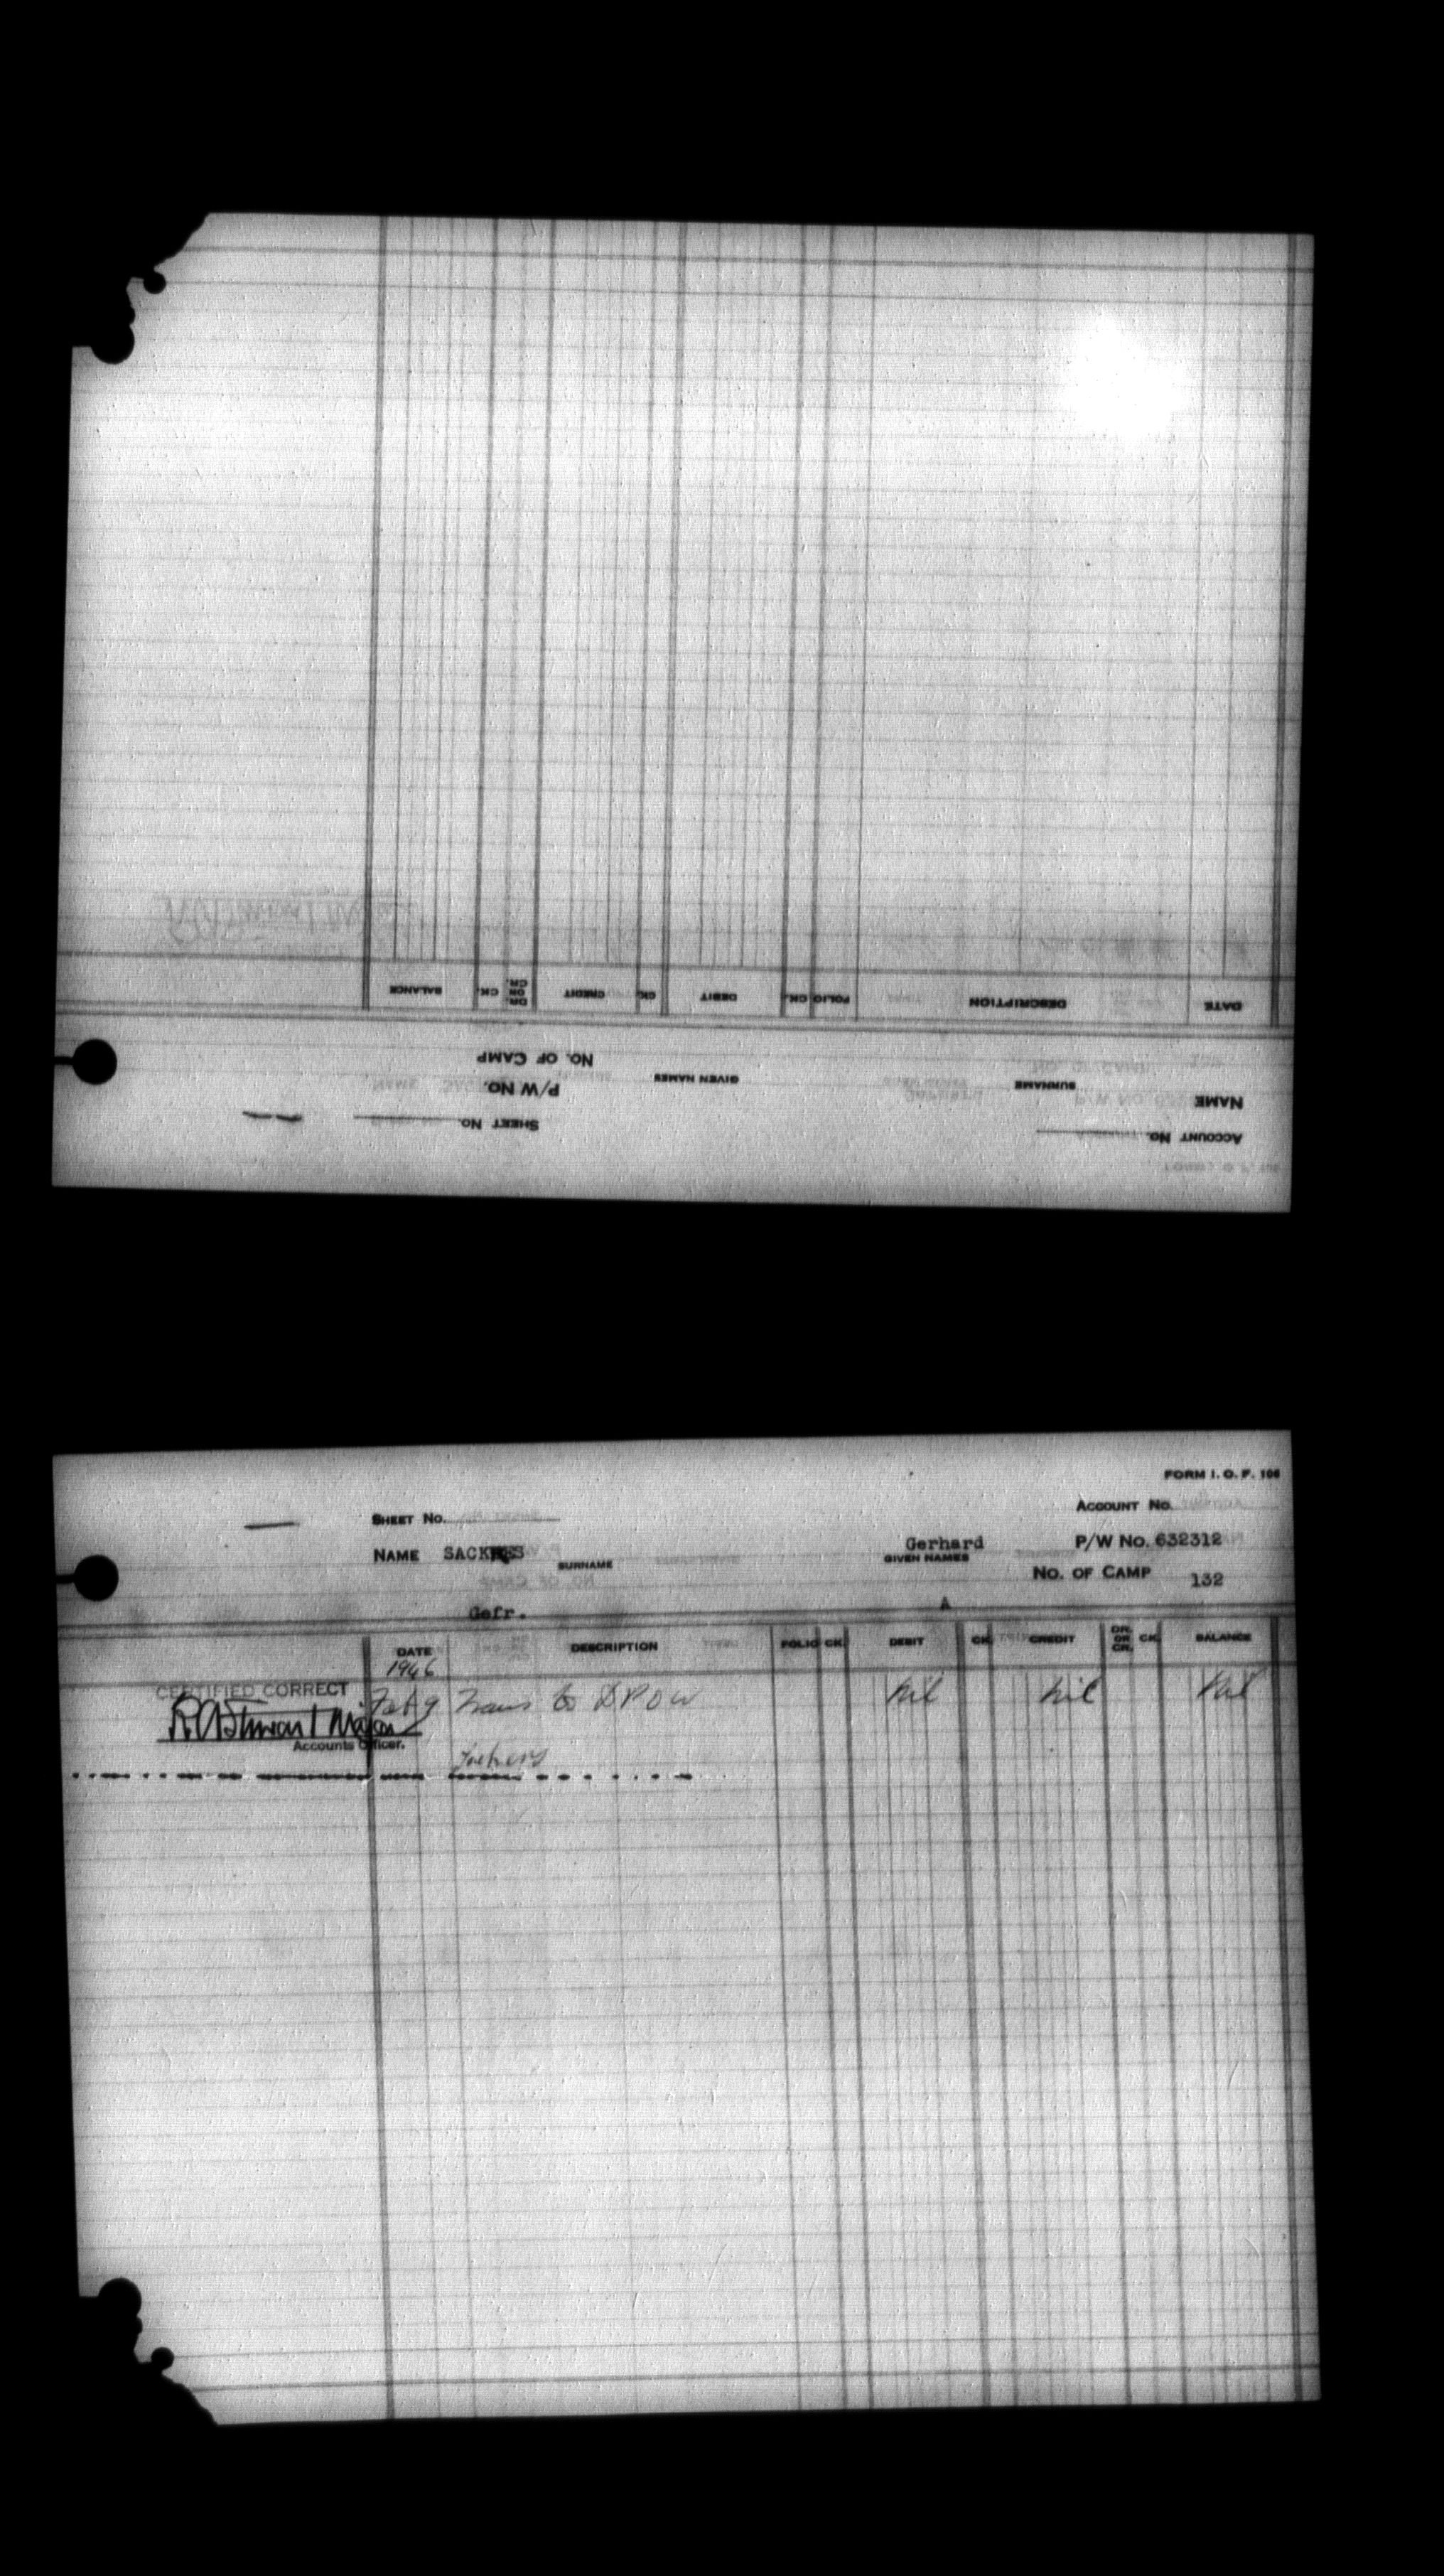 BALANCE CK. DR. OR CR. CREDIT CK. DEBIT CK. FOLIO DESCRIPTION DATE
NO. OF CAMP
P/W NO. GIVEN NAMES SURNAME NAME
SHEET NO. ACCOUNT NO.
FORM I. O. F. 106
SHEET NO. ACCOUNT NO.
NAME SURNAME Gerhard GIVEN NAMES P/W NO. 632312
NO. OF CAMP 132
Gefr. A
DATE DESCRIPTION FOLIO CK. DEBIT CK. CREDIT DR. OR CR. CK. BALANCE
1946
CERTIFIED CORRECT Feb 9 Trans to DPOW Nil Nil Nil
Major
Accounts Officer.